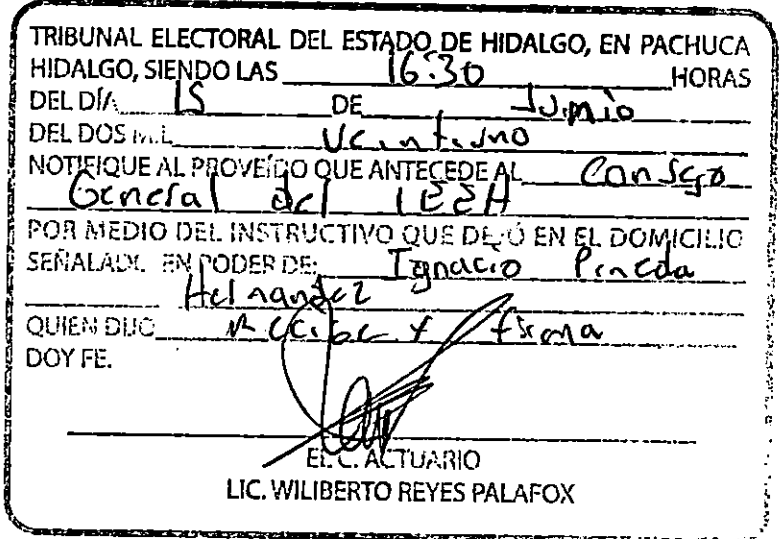 TRIBUNAL ELECTORAL DEL ESTADO DE HIDALGO, EN PACHUCA
HIDALGO, SIENDO LAS 16:30 HORAS
DEL DÍA 15 DE Junio
DEL DOS MIL Veintiuno
NOTIFIQUE AL PROVEÍDO QUE ANTECEDE AL Consejo
General del IEEH
POR MEDIO DEL INSTRUCTIVO QUE DEJÓ EN EL DOMICILIO
SEÑALADO EN PODER DE: Ignacio Pineda
Hernandez
QUIEN DIJO recibe y firma
DOY FE.
EL C. ACTUARIO
LIC. WILIBERTO REYES PALAFOX